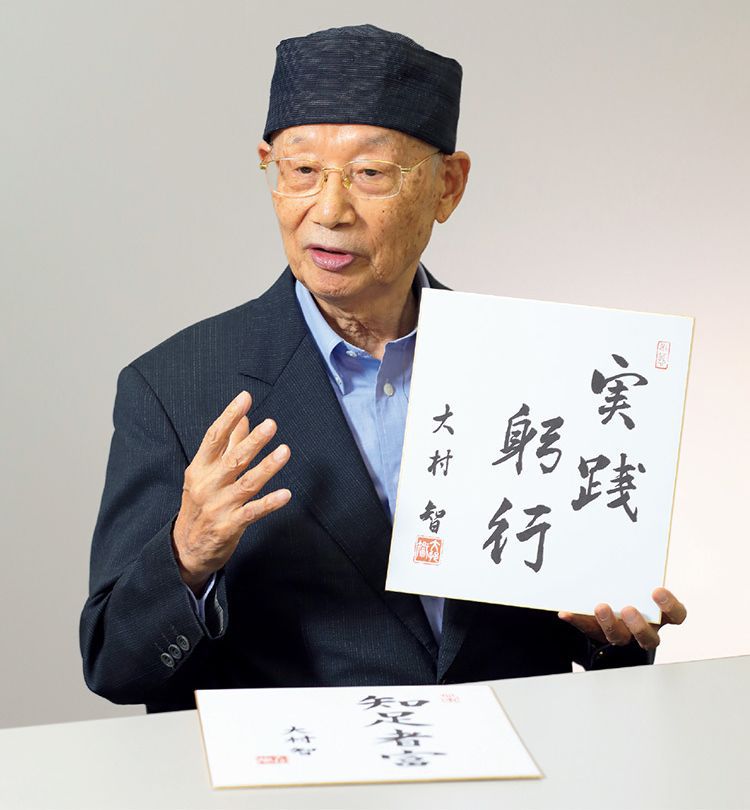 実践
躬行
大村智
知足者富
大村智